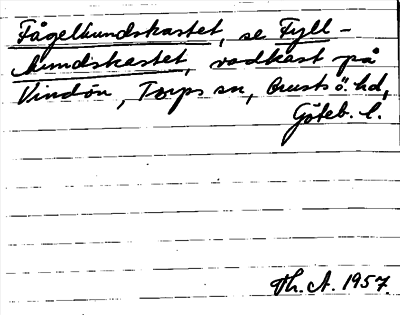 Fågelhundskastet, se Fyll-
hundskastet, vadkast på
Vindön, Torps sn, Orusts ö. hd,
Göteb. l.
Th. A. 1957.